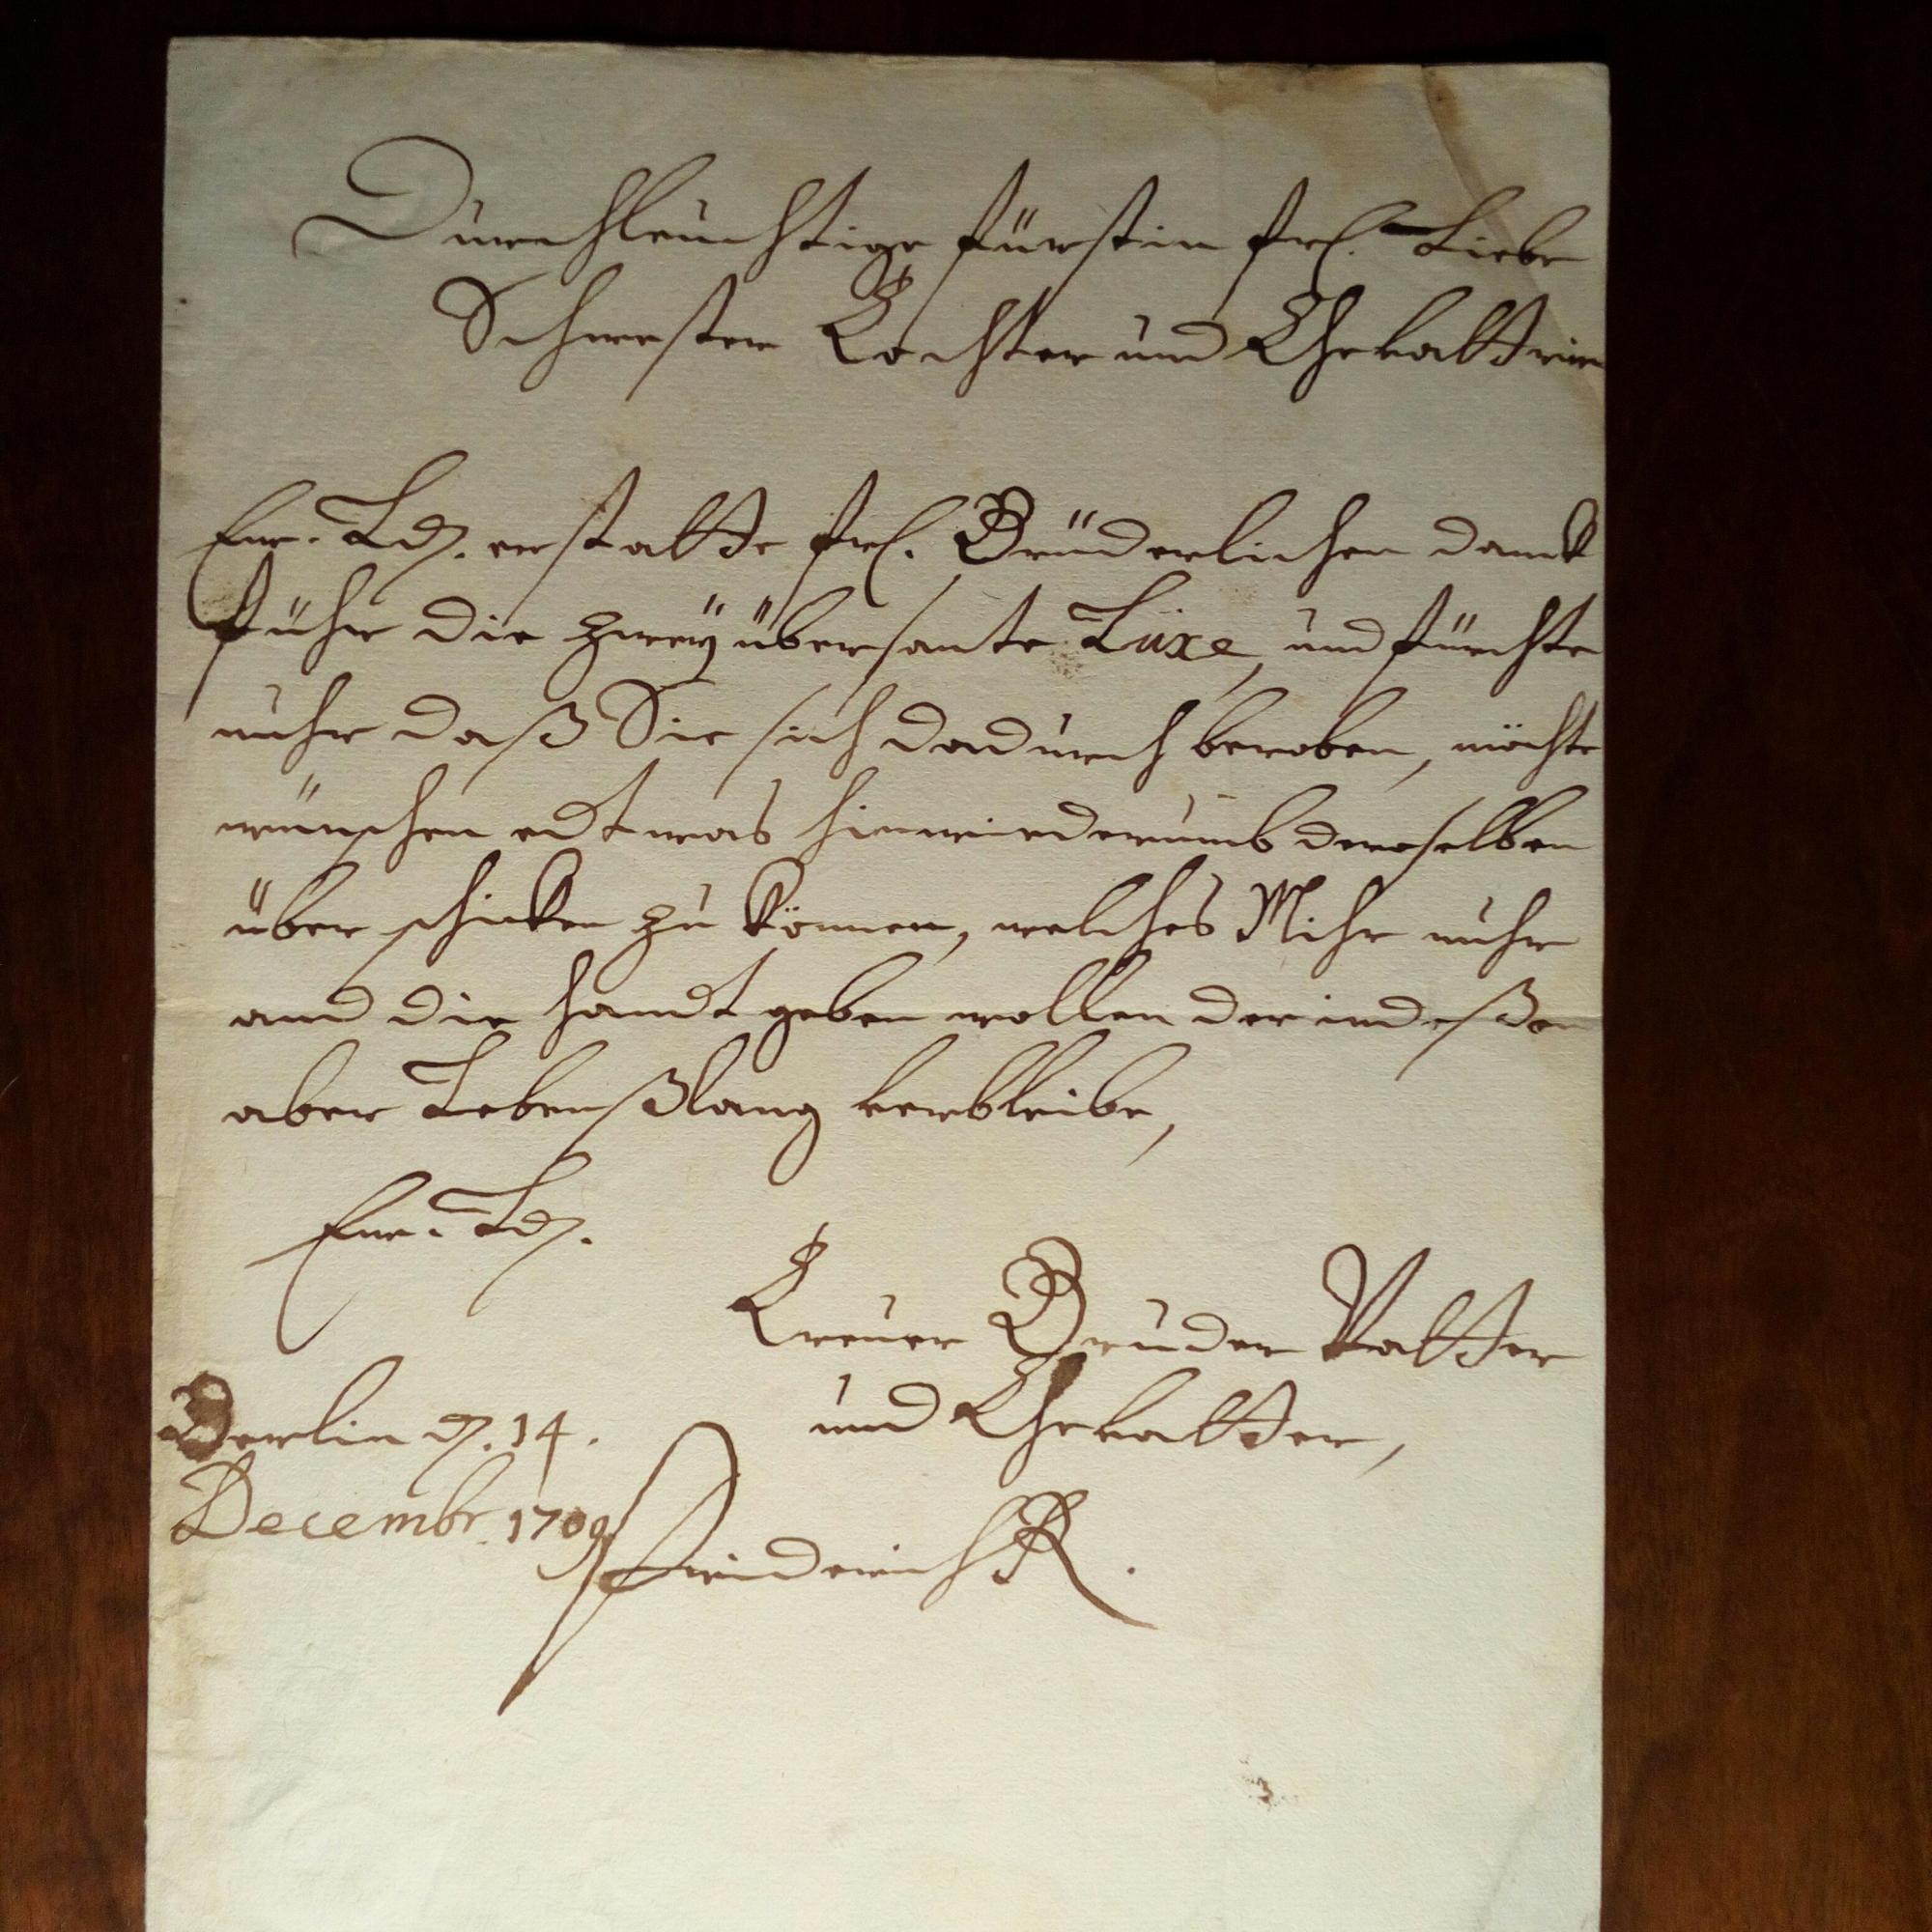 Durchleuchtige fürstin frl. Liebe
Schwester Tochter und Gevattrin
Ew. Ld. erstatte frl. Brüderlichen danck
führ die zweÿ übersante Luxe, und fürchte
nuhr daß Sie sich dadurch beroben, möchte
wünschen edtwas hinwiederumb deroselben
über schicken zu können, welches Mihr nuhr
and die handt geben wollen der indeßen
aber Lebenßlang verbleibe,
Ew. Ld.
Treuer Bruder Vatter
und Gevatter,
Berlin d. 14.
Decembr. 1709
Friderich R.